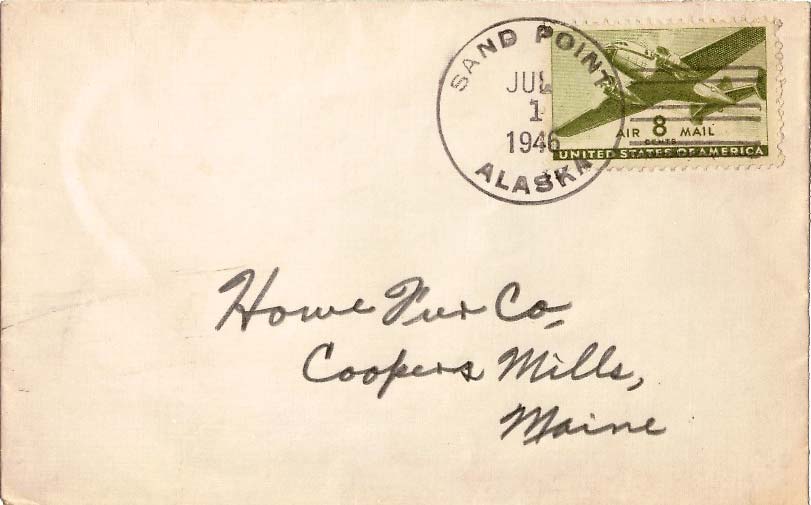 SAND POINT
JUL
1
1946
ALASKA
AIR 8 MAIL
CENTS
UNITED STATES OF AMERICA
Howe Fur Co.
Coopers Mills,
Maine